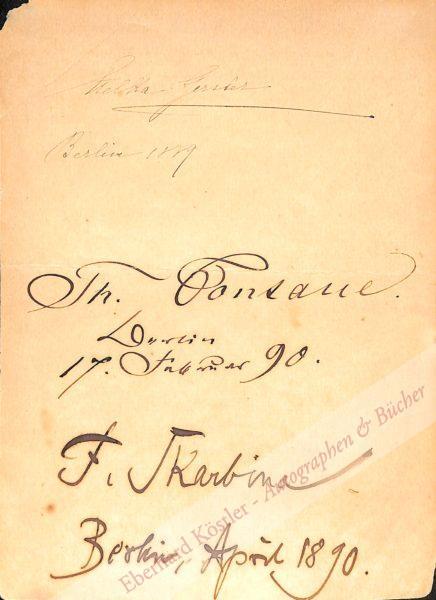 Etelka Gerster
Berlin 1889
Th. Fontane.
Berlin
17. Februar 90.
F. Skarbina
Berlin, April 1890.
Eberhard Köstler - Autographen & Bücher